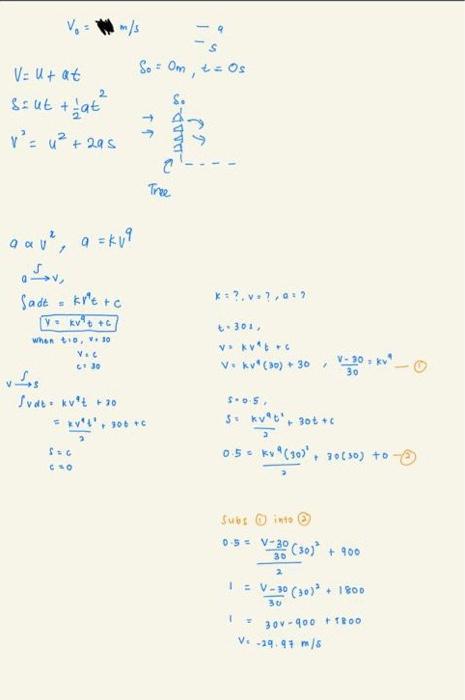 V₀ = m/s
- a
- s
S₀ = 0m, t = 0s
V = u + at
S = ut + ½at²
V² = u² + 2as
S₀
Tree
a ∝ v², a = kv^q
a ∫→ v,
∫adt = kv^q t + c
V = kv^q t + c
when t=0, v=30
V = c
c = 30
v ∫→ s
∫vdt = kv^q t + 30
= kv^q t²/2 + 30t + c
S = c
c = 0
k = ?, v = ?, a = ?
t = 30s,
V = kv^q t + c
V = kv^q (30) + 30 , V-30/30 = kv^q — ①
S = 0.5,
S = kv^q t²/2 + 30t + c
0.5 = kv^q (30)²/2 + 30(30) + 0 - ②
Subs ① into ②
0.5 = V-30/30 (30)²/2 + 900
1 = V-30/30 (30)² + 1800
1 = 30v - 900 + 1800
V = -29.97 m/s